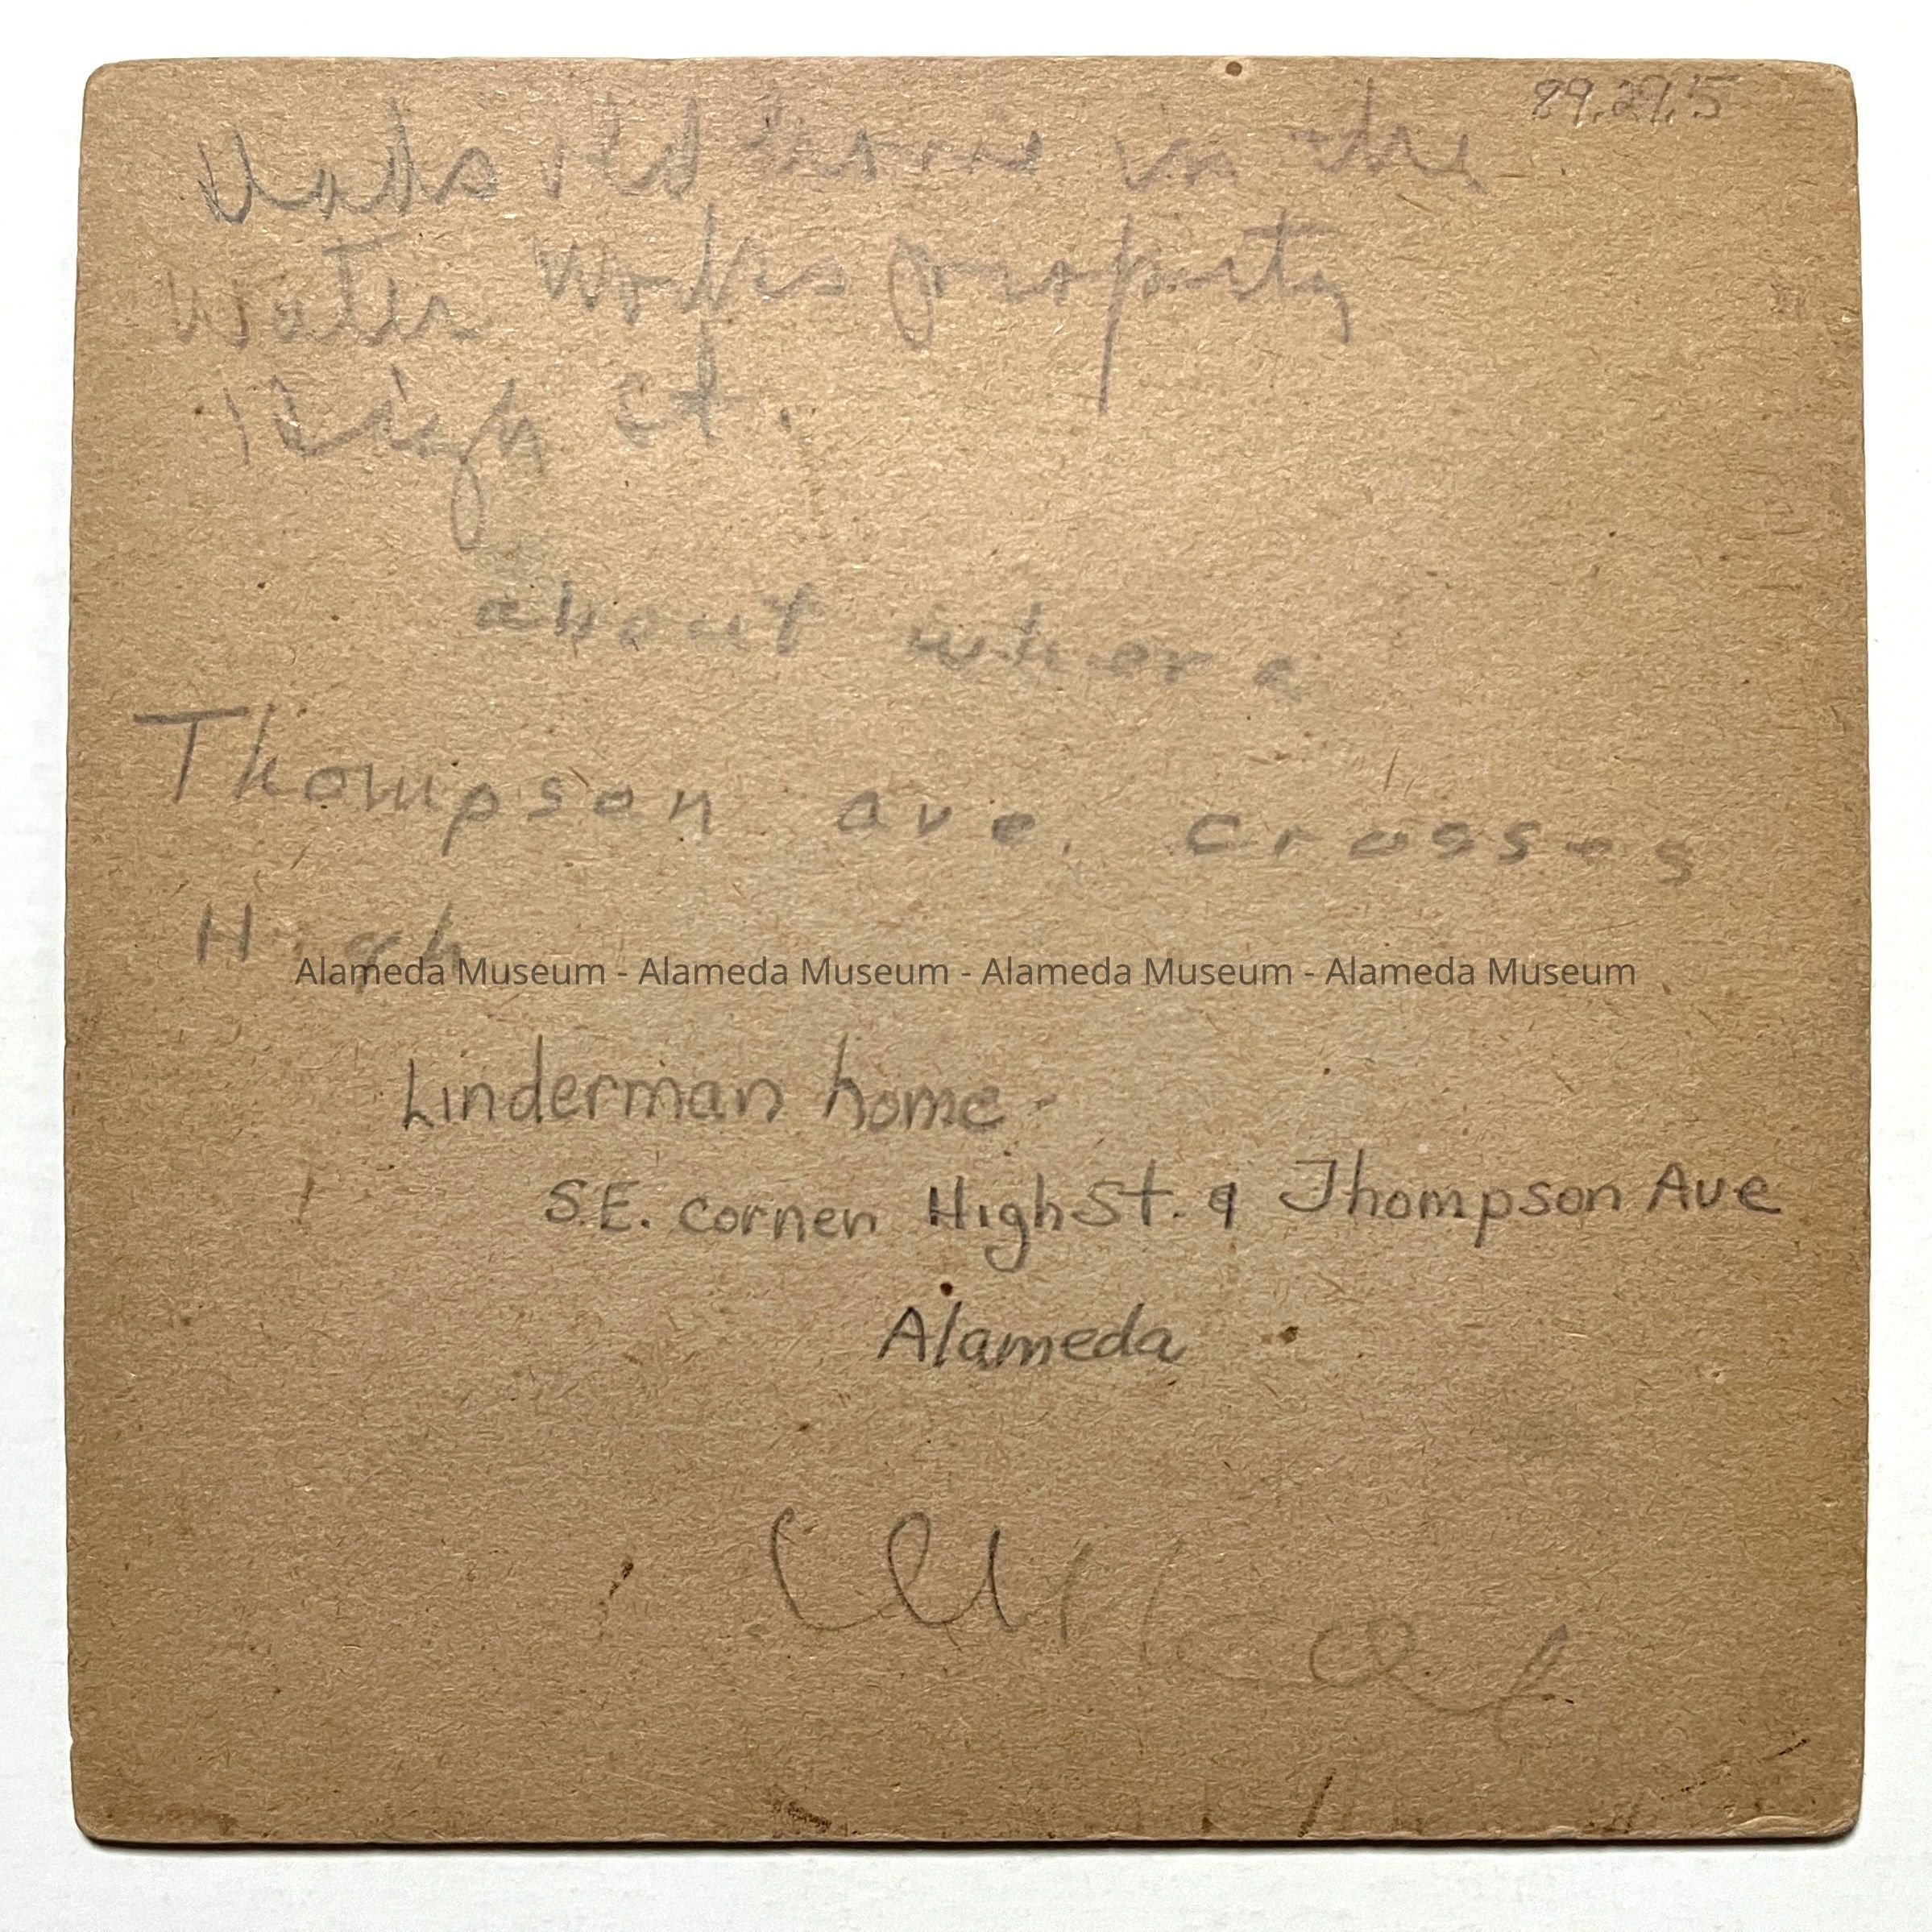 89.29.5
old home in the
Water Works property
High St.
about where
Thompson ave. crosses
High
Alameda Museum - Alameda Museum - Alameda Museum - Alameda Museum
Linderman home
S.E. corner High St. & Thompson Ave
Alameda